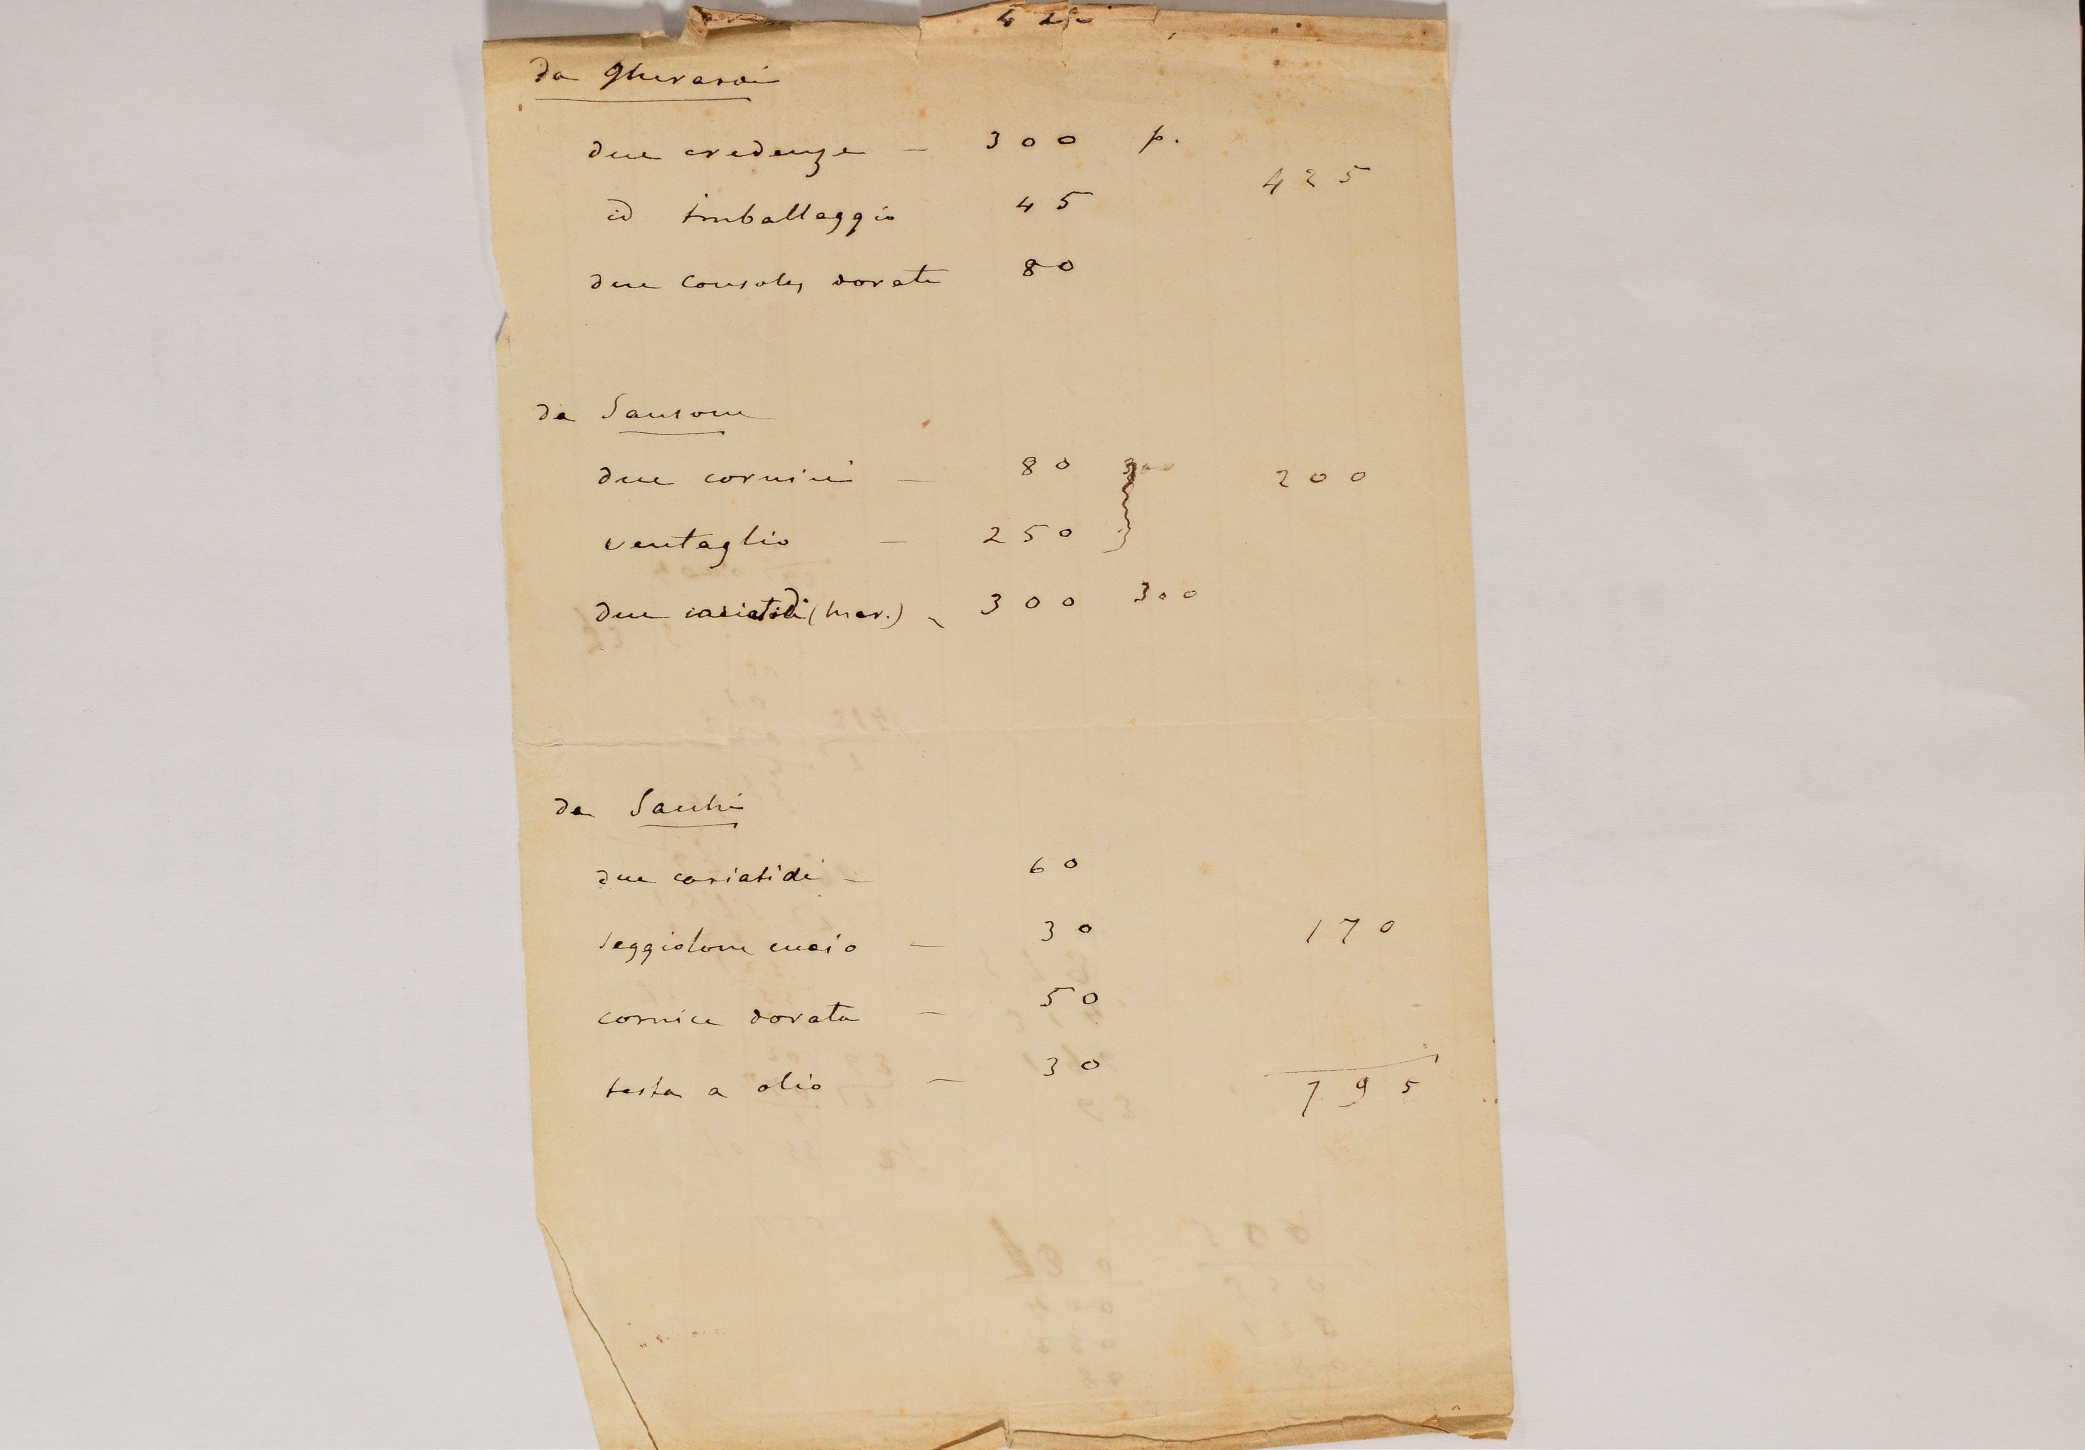 da Gherardi
due credenze — 300 p.
425
id imballaggio 45
due consoles dorate 80
da Sansoni
due cornici — 80 300 200
ventaglio — 250
due cariatidi (mar.) – 300 300
da
due cariatidi — 60
seggiolone cuoio — 30 170
cornice dorata — 50
testa a olio — 30
795